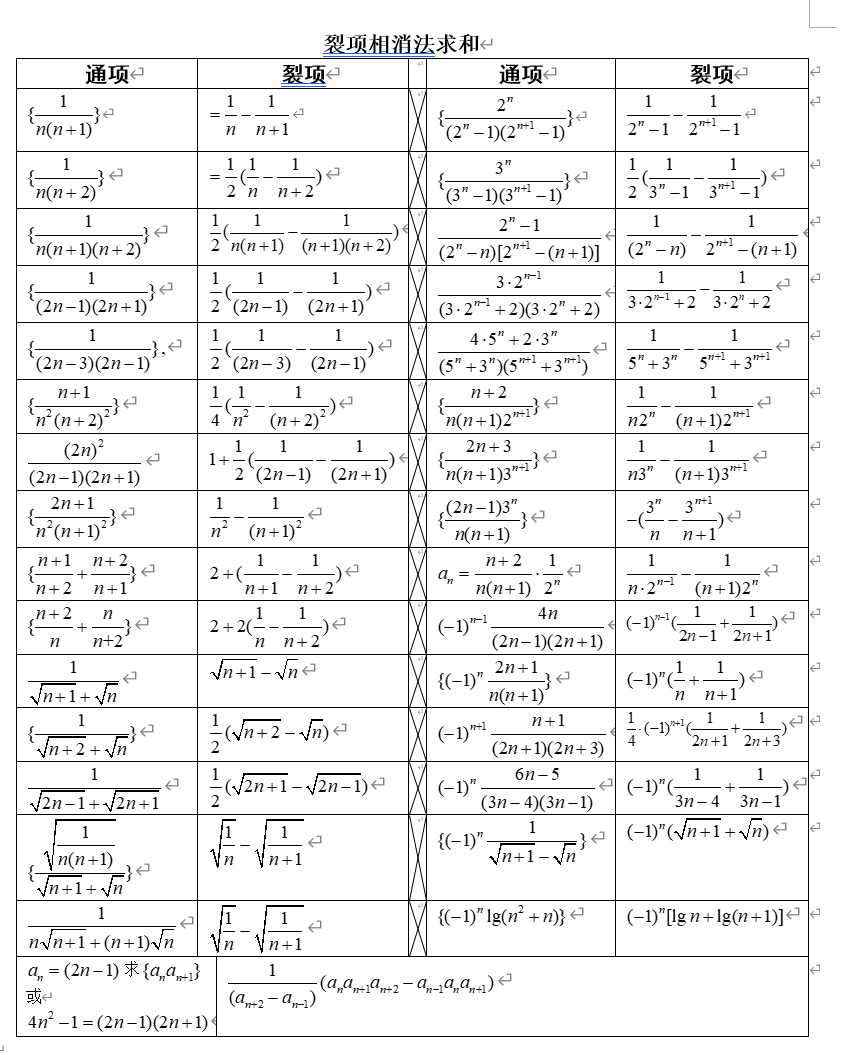 裂项相消法求和
通项 裂项 通项 裂项
{1/(n(n+1))} =1/n − 1/(n+1) {2^n/((2^n−1)(2^(n+1)−1))} 1/(2^n−1) − 1/(2^(n+1)−1)
{1/(n(n+2))} =1/2(1/n − 1/(n+2)) {3^n/((3^n−1)(3^(n+1)−1))} 1/2(1/(3^n−1) − 1/(3^(n+1)−1))
{1/(n(n+1)(n+2))} 1/2(1/(n(n+1)) − 1/((n+1)(n+2))) (2^n−1)/((2^n−n)[2^(n+1)−(n+1)]) 1/(2^n−n) − 1/(2^(n+1)−(n+1))
{1/((2n−1)(2n+1))} 1/2(1/(2n−1) − 1/(2n+1)) 3·2^(n−1)/((3·2^(n−1)+2)(3·2^n+2)) 1/(3·2^(n−1)+2) − 1/(3·2^n+2)
{1/((2n−3)(2n−1))}, 1/2(1/(2n−3) − 1/(2n−1)) (4·5^n+2·3^n)/((5^n+3^n)(5^(n+1)+3^(n+1))) 1/(5^n+3^n) − 1/(5^(n+1)+3^(n+1))
{(n+1)/(n²(n+2)²)} 1/4(1/n² − 1/(n+2)²) {(n+2)/(n(n+1)2^(n+1))} 1/(n2^n) − 1/((n+1)2^(n+1))
(2n)²/((2n−1)(2n+1)) 1+1/2(1/(2n−1) − 1/(2n+1)) {(2n+3)/(n(n+1)3^(n+1))} 1/(n3^n) − 1/((n+1)3^(n+1))
{(2n+1)/(n²(n+1)²)} 1/n² − 1/(n+1)² {(2n−1)3^n/(n(n+1))} −(3^n/n − 3^(n+1)/(n+1))
{(n+1)/(n+2) + (n+2)/(n+1)} 2+(1/(n+1) − 1/(n+2)) a_n = (n+2)/(n(n+1)) · 1/2^n 1/(n·2^(n−1)) − 1/((n+1)2^n)
{(n+2)/n + n/(n+2)} 2+2(1/n − 1/(n+2)) (−1)^(n−1) 4n/((2n−1)(2n+1)) (−1)^(n−1)(1/(2n−1) + 1/(2n+1))
1/(√(n+1)+√n) √(n+1)−√n {(−1)^n (2n+1)/(n(n+1))} (−1)^n(1/n + 1/(n+1))
{1/(√(n+2)+√n)} 1/2(√(n+2)−√n) (−1)^(n+1) (n+1)/((2n+1)(2n+3)) 1/4·(−1)^(n+1)(1/(2n+1) + 1/(2n+3))
1/(√(2n−1)+√(2n+1)) 1/2(√(2n+1)−√(2n−1)) (−1)^n (6n−5)/((3n−4)(3n−1)) (−1)^n(1/(3n−4) + 1/(3n−1))
{√(1/(n(n+1)))/(√(n+1)+√n)} √(1/n) − √(1/(n+1)) {(−1)^n 1/(√(n+1)−√n)} (−1)^n(√(n+1)+√n)
1/(n√(n+1)+(n+1)√n) √(1/n) − √(1/(n+1)) {(−1)^n lg(n²+n)} (−1)^n[lg n+lg(n+1)]
a_n=(2n−1) 求{a_n a_(n+1)} 1/(a_(n+2)−a_(n−1)) (a_n a_(n+1) a_(n+2) − a_(n−1) a_n a_(n+1))
或
4n²−1=(2n−1)(2n+1)